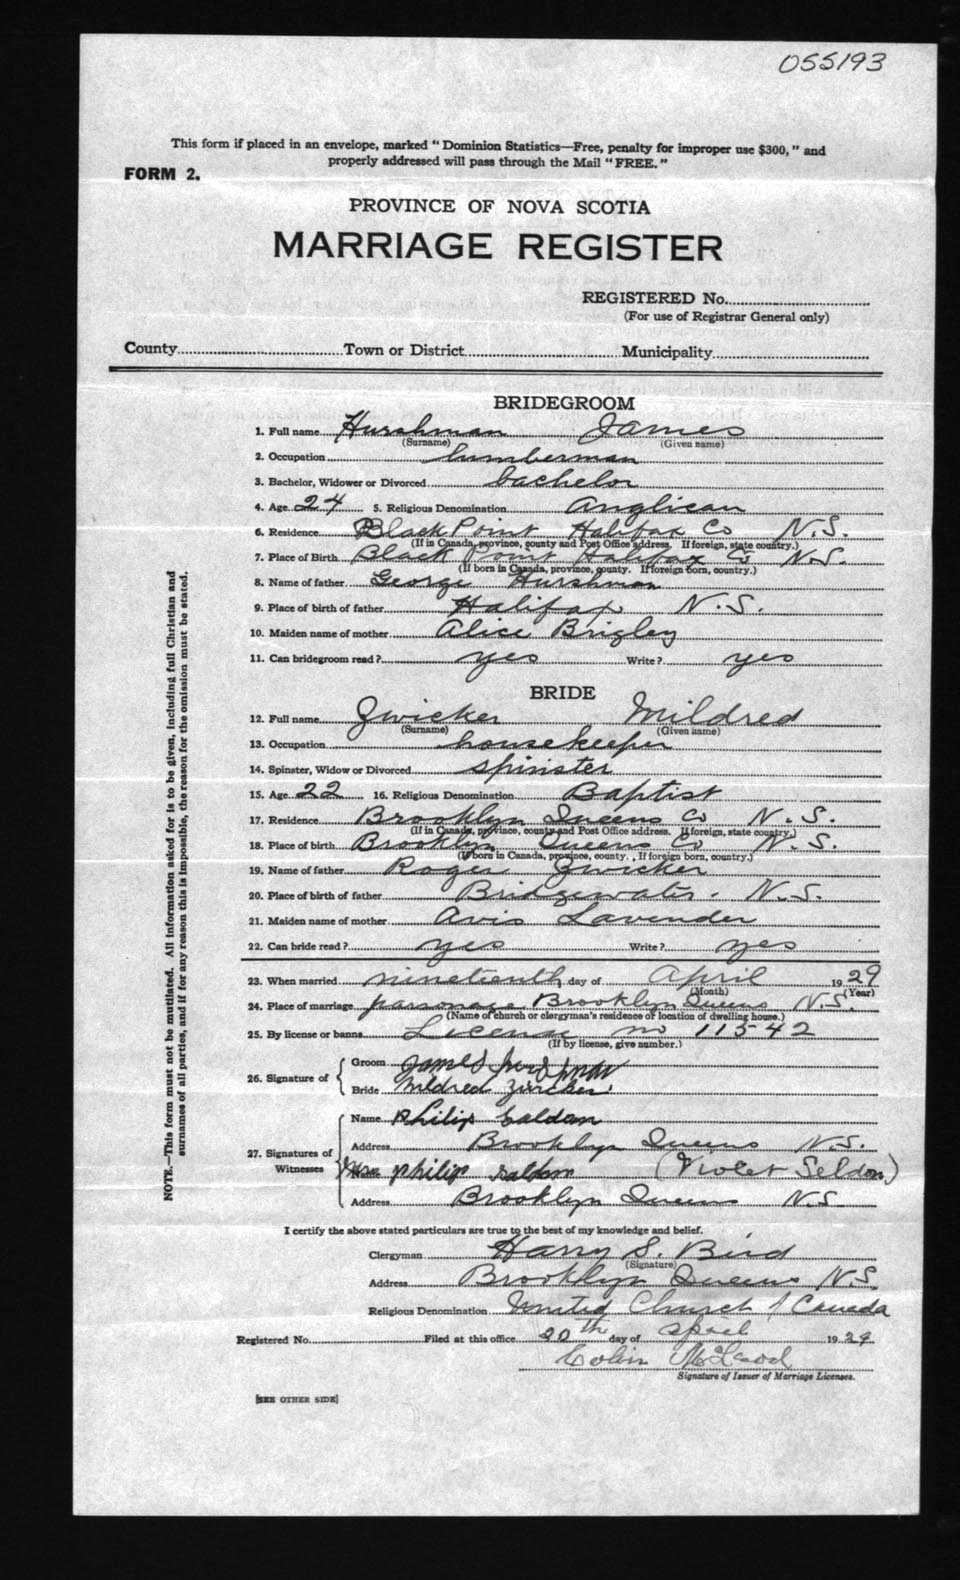 055193
This form if placed in an envelope, marked "Dominion Statistics—Free, penalty for improper use $300," and
properly addressed will pass through the Mail "FREE."
FORM 2.
PROVINCE OF NOVA SCOTIA
MARRIAGE REGISTER
REGISTERED No.
(For use of Registrar General only)
County Town or District Municipality
BRIDEGROOM
1. Full name Hurshman James
(Surname) (Given name)
2. Occupation lumberman
3. Bachelor, Widower or Divorced bachelor
4. Age 24 5. Religious Denomination Anglican
6. Residence Black Point Halifax Co N.S.
(If in Canada, province, county and Post Office address. If foreign, state country.)
7. Place of Birth Black Point Halifax Co N.S.
(If born in Canada, province, county. If foreign born, country.)
8. Name of father George Hurshman
9. Place of birth of father Halifax N.S.
10. Maiden name of mother Alice Brigley
11. Can bridegroom read? yes Write? yes
BRIDE
12. Full name Zwicker Mildred
(Surname) (Given name)
13. Occupation housekeeper
14. Spinster, Widow or Divorced spinster
15. Age 22 16. Religious Denomination Baptist
17. Residence Brooklyn Queens Co N.S.
(If in Canada, province, county and Post Office address. If foreign, state country.)
18. Place of birth Brooklyn Queens Co N.S.
(If born in Canada, province, county. If foreign born, country.)
19. Name of father Roger Zwicker
20. Place of birth of father Bridgewater. N.S.
21. Maiden name of mother Avis Lavender
22. Can bride read? yes Write? yes
23. When married nineteenth day of April 1929
(Month) (Year)
24. Place of marriage parsonage Brooklyn Queens N.S.
(Name of church or clergyman's residence or location of dwelling house.)
25. By license or banns License no 11542
(If by license, give number.)
26. Signature of Groom James
Bride Mildred Zwicker
27. Signatures of Witnesses
Name Philip Saldon
Address Brooklyn Queens N.S.
Name Mrs Philip Saldon (Violet Seldon)
Address Brooklyn Queens N.S.
NOTE.—This form must not be mutilated. All information asked for is to be given, including full Christian and
surnames of all parties, and if for any reason this is impossible, the reason for the omission must be stated.
I certify the above stated particulars are true to the best of my knowledge and belief.
Clergyman Harry S. Bird
(Signature)
Address Brooklyn Queens N.S.
Religious Denomination United Church of Canada
Registered No. Filed at this office 20th day of April 1929
Colin McLeod
Signature of Issuer of Marriage Licenses.
[SEE OTHER SIDE]